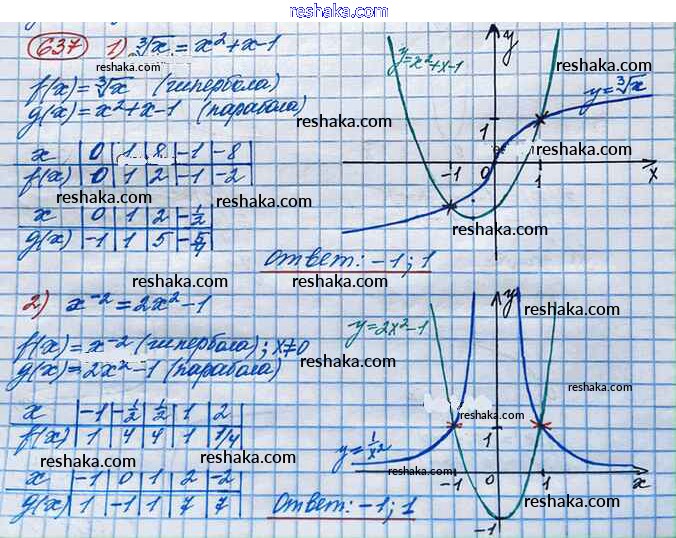 reshaka.com
637 1) ∛x = x²+x-1
reshaka.com
f(x) = ∛x (гипербола)
g(x) = x²+x-1 (парабола)
reshaka.com
x | 0 | 1 | 8 | -1 | -8
f(x) | 0 | 1 | 2 | -1 | -2
x | 0 | 1 | 2 | -1/2
g(x) | -1 | 1 | 5 | -5/4
reshaka.com
y=x²+x-1
y
y=∛x
reshaka.com
1
reshaka.com
-1 0 1 x
reshaka.com
reshaka.com
Ответ: -1; 1
reshaka.com
2) x⁻² = 2x²-1
f(x) = x⁻² (гипербола); x≠0
g(x) = 2x²-1 (парабола)
reshaka.com
reshaka.com
x | -1 | -1/2 | 1/2 | 1 | 2
f(x) | 1 | 4 | 4 | 1 | 1/4
reshaka.com
x | -1 | 0 | 1 | 2 | -2
g(x) | 1 | -1 | 1 | 7 | 7
reshaka.com
y=2x²-1
y
reshaka.com
reshaka.com
1
reshaka.com
y=1/x²
reshaka.com
-1 0 1 x
-1
reshaka.com
Ответ: -1; 1